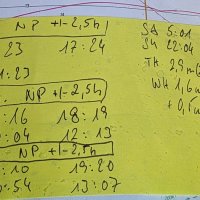 NP +/-2,5h
23 17:24
1:23
NP +/-2,5h
:16 18:19
:04 12:13
NP +/-2,5h
:10 19:20
:54 13:07
SA 5:01
SU 22:04
TH 2,9m
WH 1,6m
+0,6